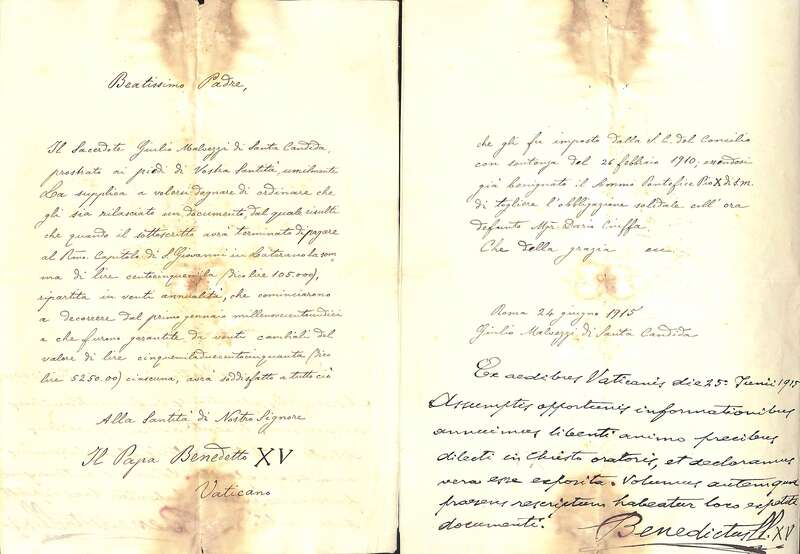 Beatissimo Padre,
Il Sacerdote Giulio Malvezzi di Santa Candida,
prostrato ai piedi di Vostra Santità umilmente
La supplica a volersi degnare di ordinare che
gli sia rilasciato un documento, dal quale risulti
che quando il sottoscritto avrà terminato di pagare
al Rmo. Capitolo di S. Giovanni in Laterano la som
ma di lire centocinquemila (dico lire 105.000),
ripartita in venti annualità, che cominciarono
a decorrere dal primo gennaio millenovecentoundici
e che furono garantite da venti cambiali del
valore di lire cinquemiladuecentocinquanta (dico
lire 5250.00) ciascuna, avrà soddisfatto a tutto ciò
Alla Santità di Nostro Signore
Il Papa Benedetto XV
Vaticano
che gli fu imposto dalla S. C. del Concilio
con sentenza del 26 febbraio 1910; essendosi
già benignato il Sommo Pontefice Pio X di s.m.
di togliere l'obbligazione solidale coll'ora
defunto Mgr. Dario
Che della grazia ecc
Roma 24 giugno 1915
Giulio Malvezzi di Santa Candida
Ex aedibus Vaticanis die 25 Junii 1915
Assumptis opportunis informationibus
annuimus libenti animo precibus
dilecti in Christo oratoris, et declaramus
vera esse exposita. Volumus autem quod
praesens rescriptum habeatur loco expetiti
documenti.
Benedictus PP. XV